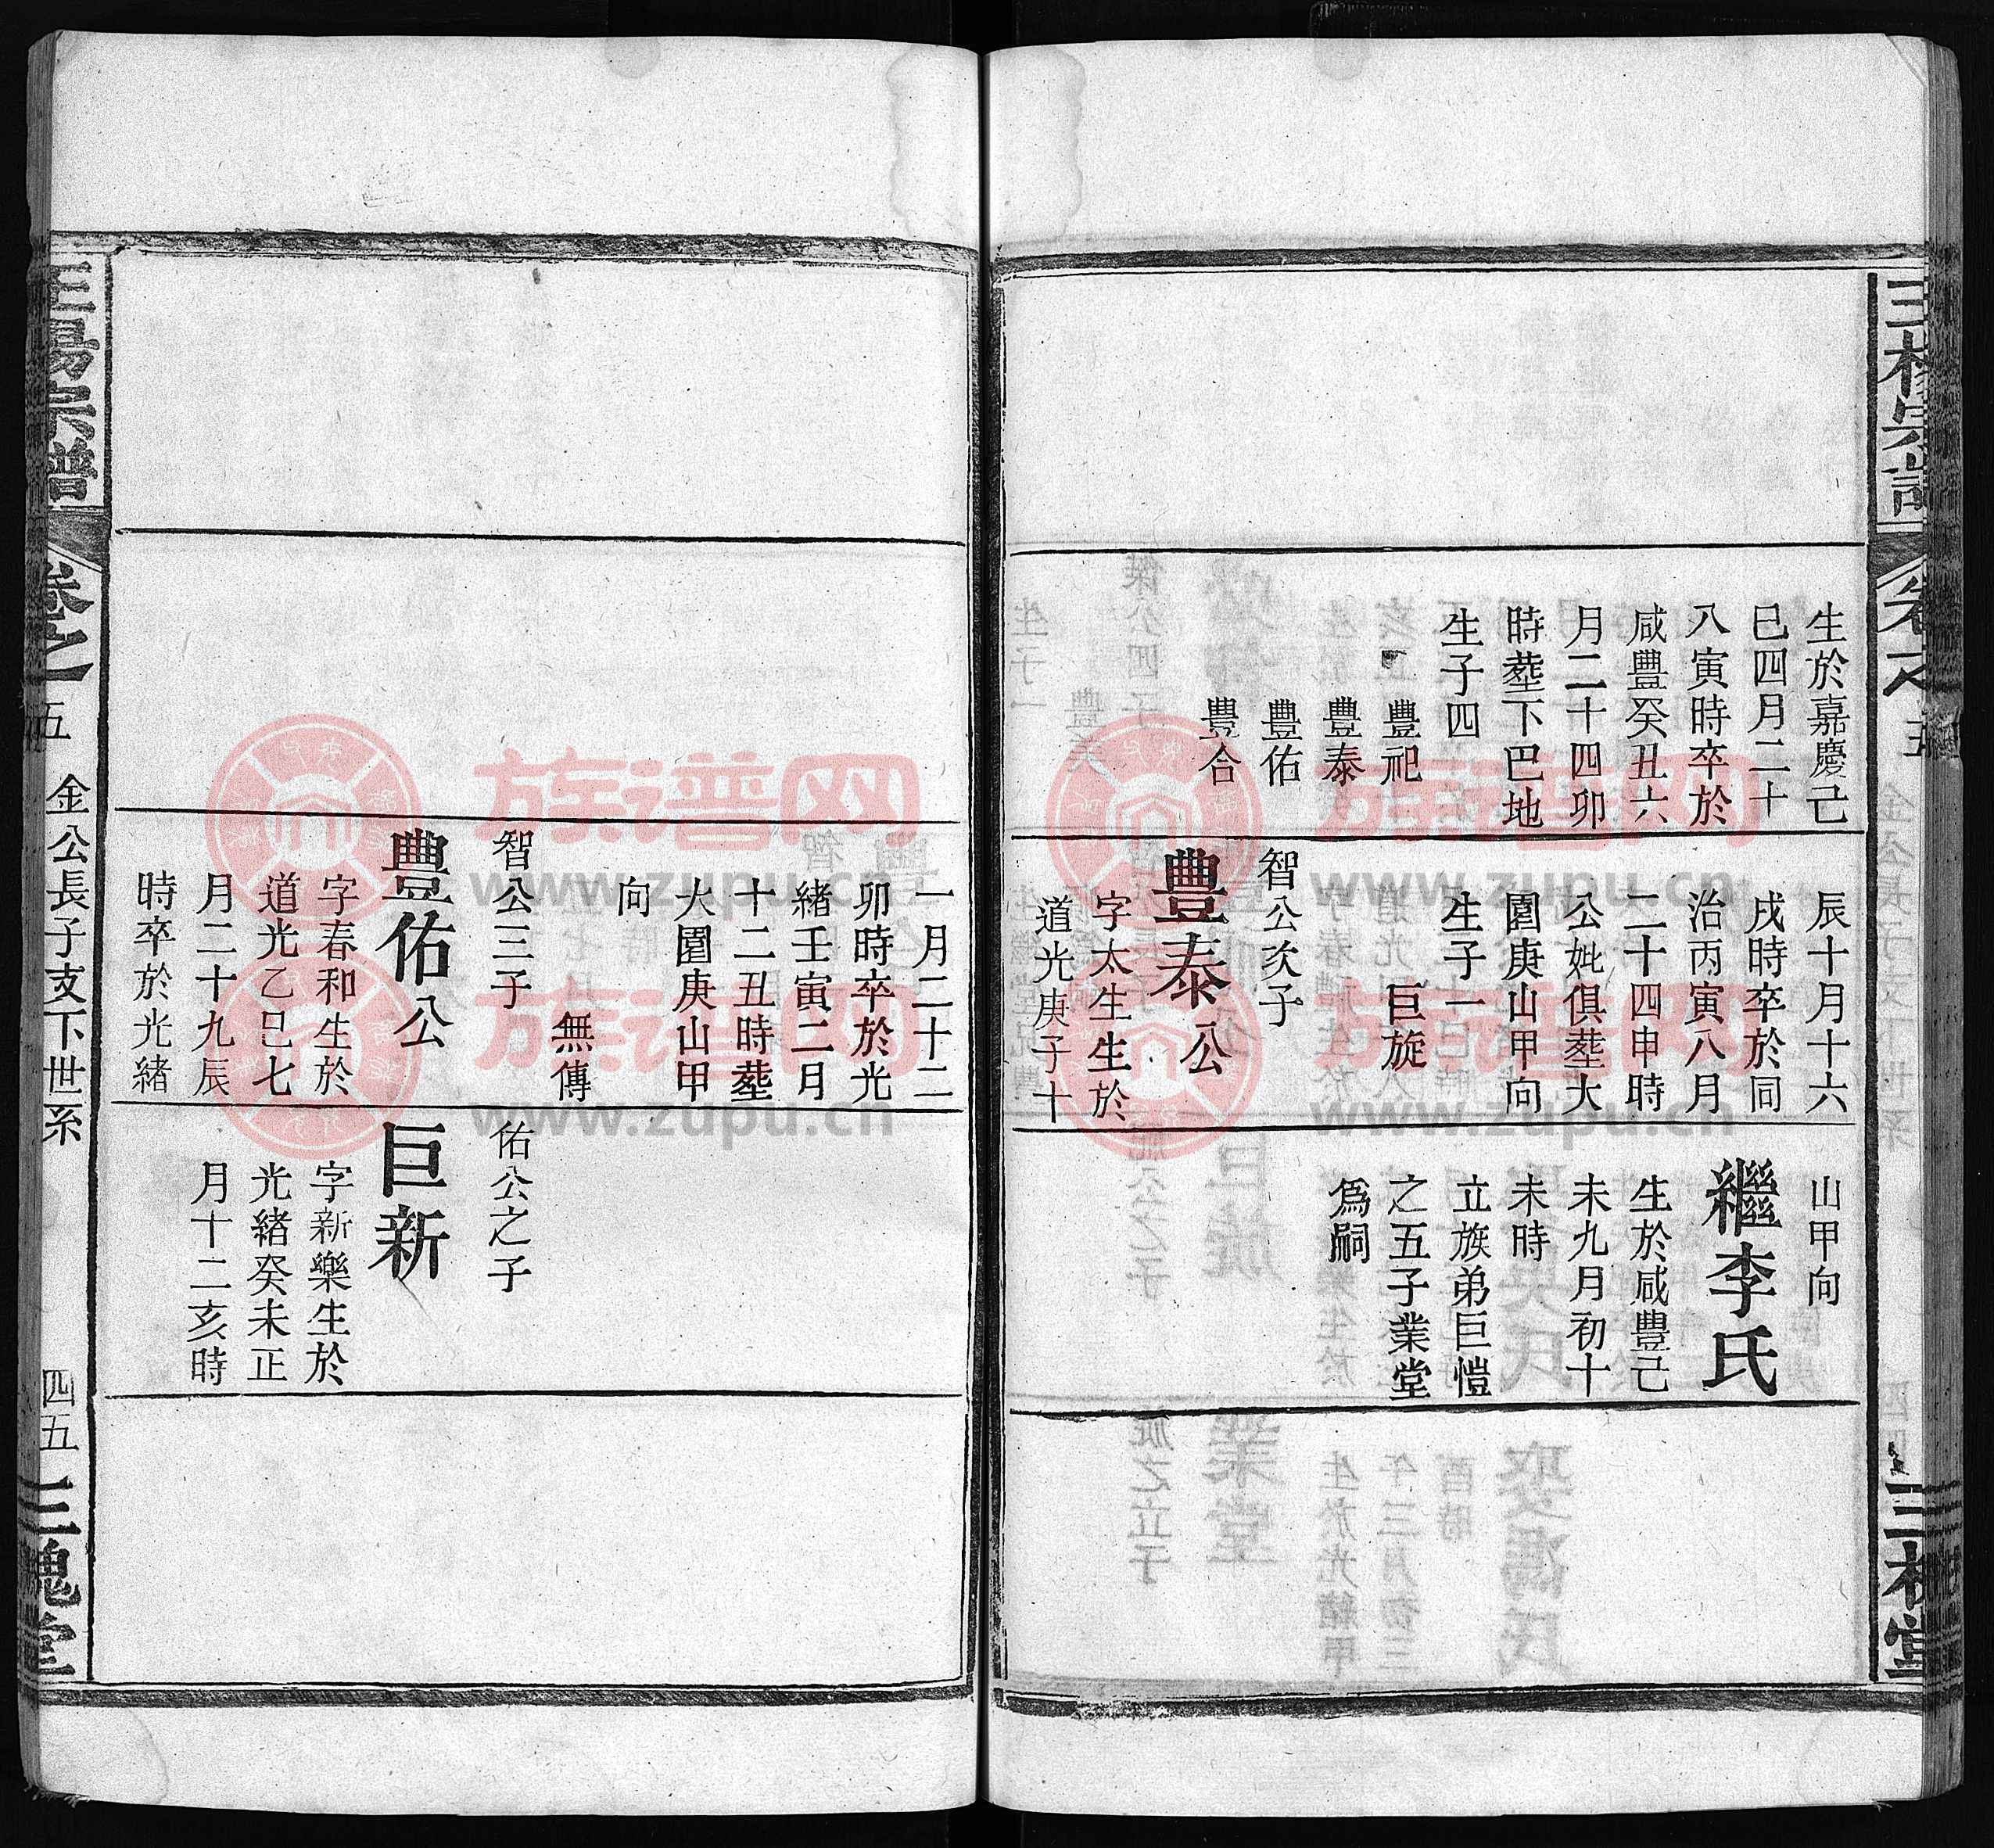 生於嘉慶己
巳四月二十
八寅時卒於
咸豐癸丑六
月二十四卯
時塟下巴地
生子四
豐祀
豐泰
豐佑
豐合
辰十月十六
戌時卒於同
治丙寅八月
二十四申時
公妣俱塟大
圍庚山甲向
生子一
巨旋
智公次子
豐泰公
字太生生於
道光庚子十
山甲向
繼李氏
生於咸豐己
未九月初十
未時
立族弟巨愷
之五子業堂
為嗣
一月二十二
卯時卒於光
緒壬寅二月
十二丑時塟
大圍庚山甲
向
無傳
智公三子
豐佑公
字春和生於
道光乙巳七
月二十九辰
時卒於光緒
佑公之子
巨新
字新樂生於
光緒癸未正
月十二亥時
卷之五
金公長子支下世系
四五
三槐堂
族谱网
www.zupu.cn
族谱网
www.zupu.cn
族谱网
www.zupu.cn
族谱网
www.zupu.cn